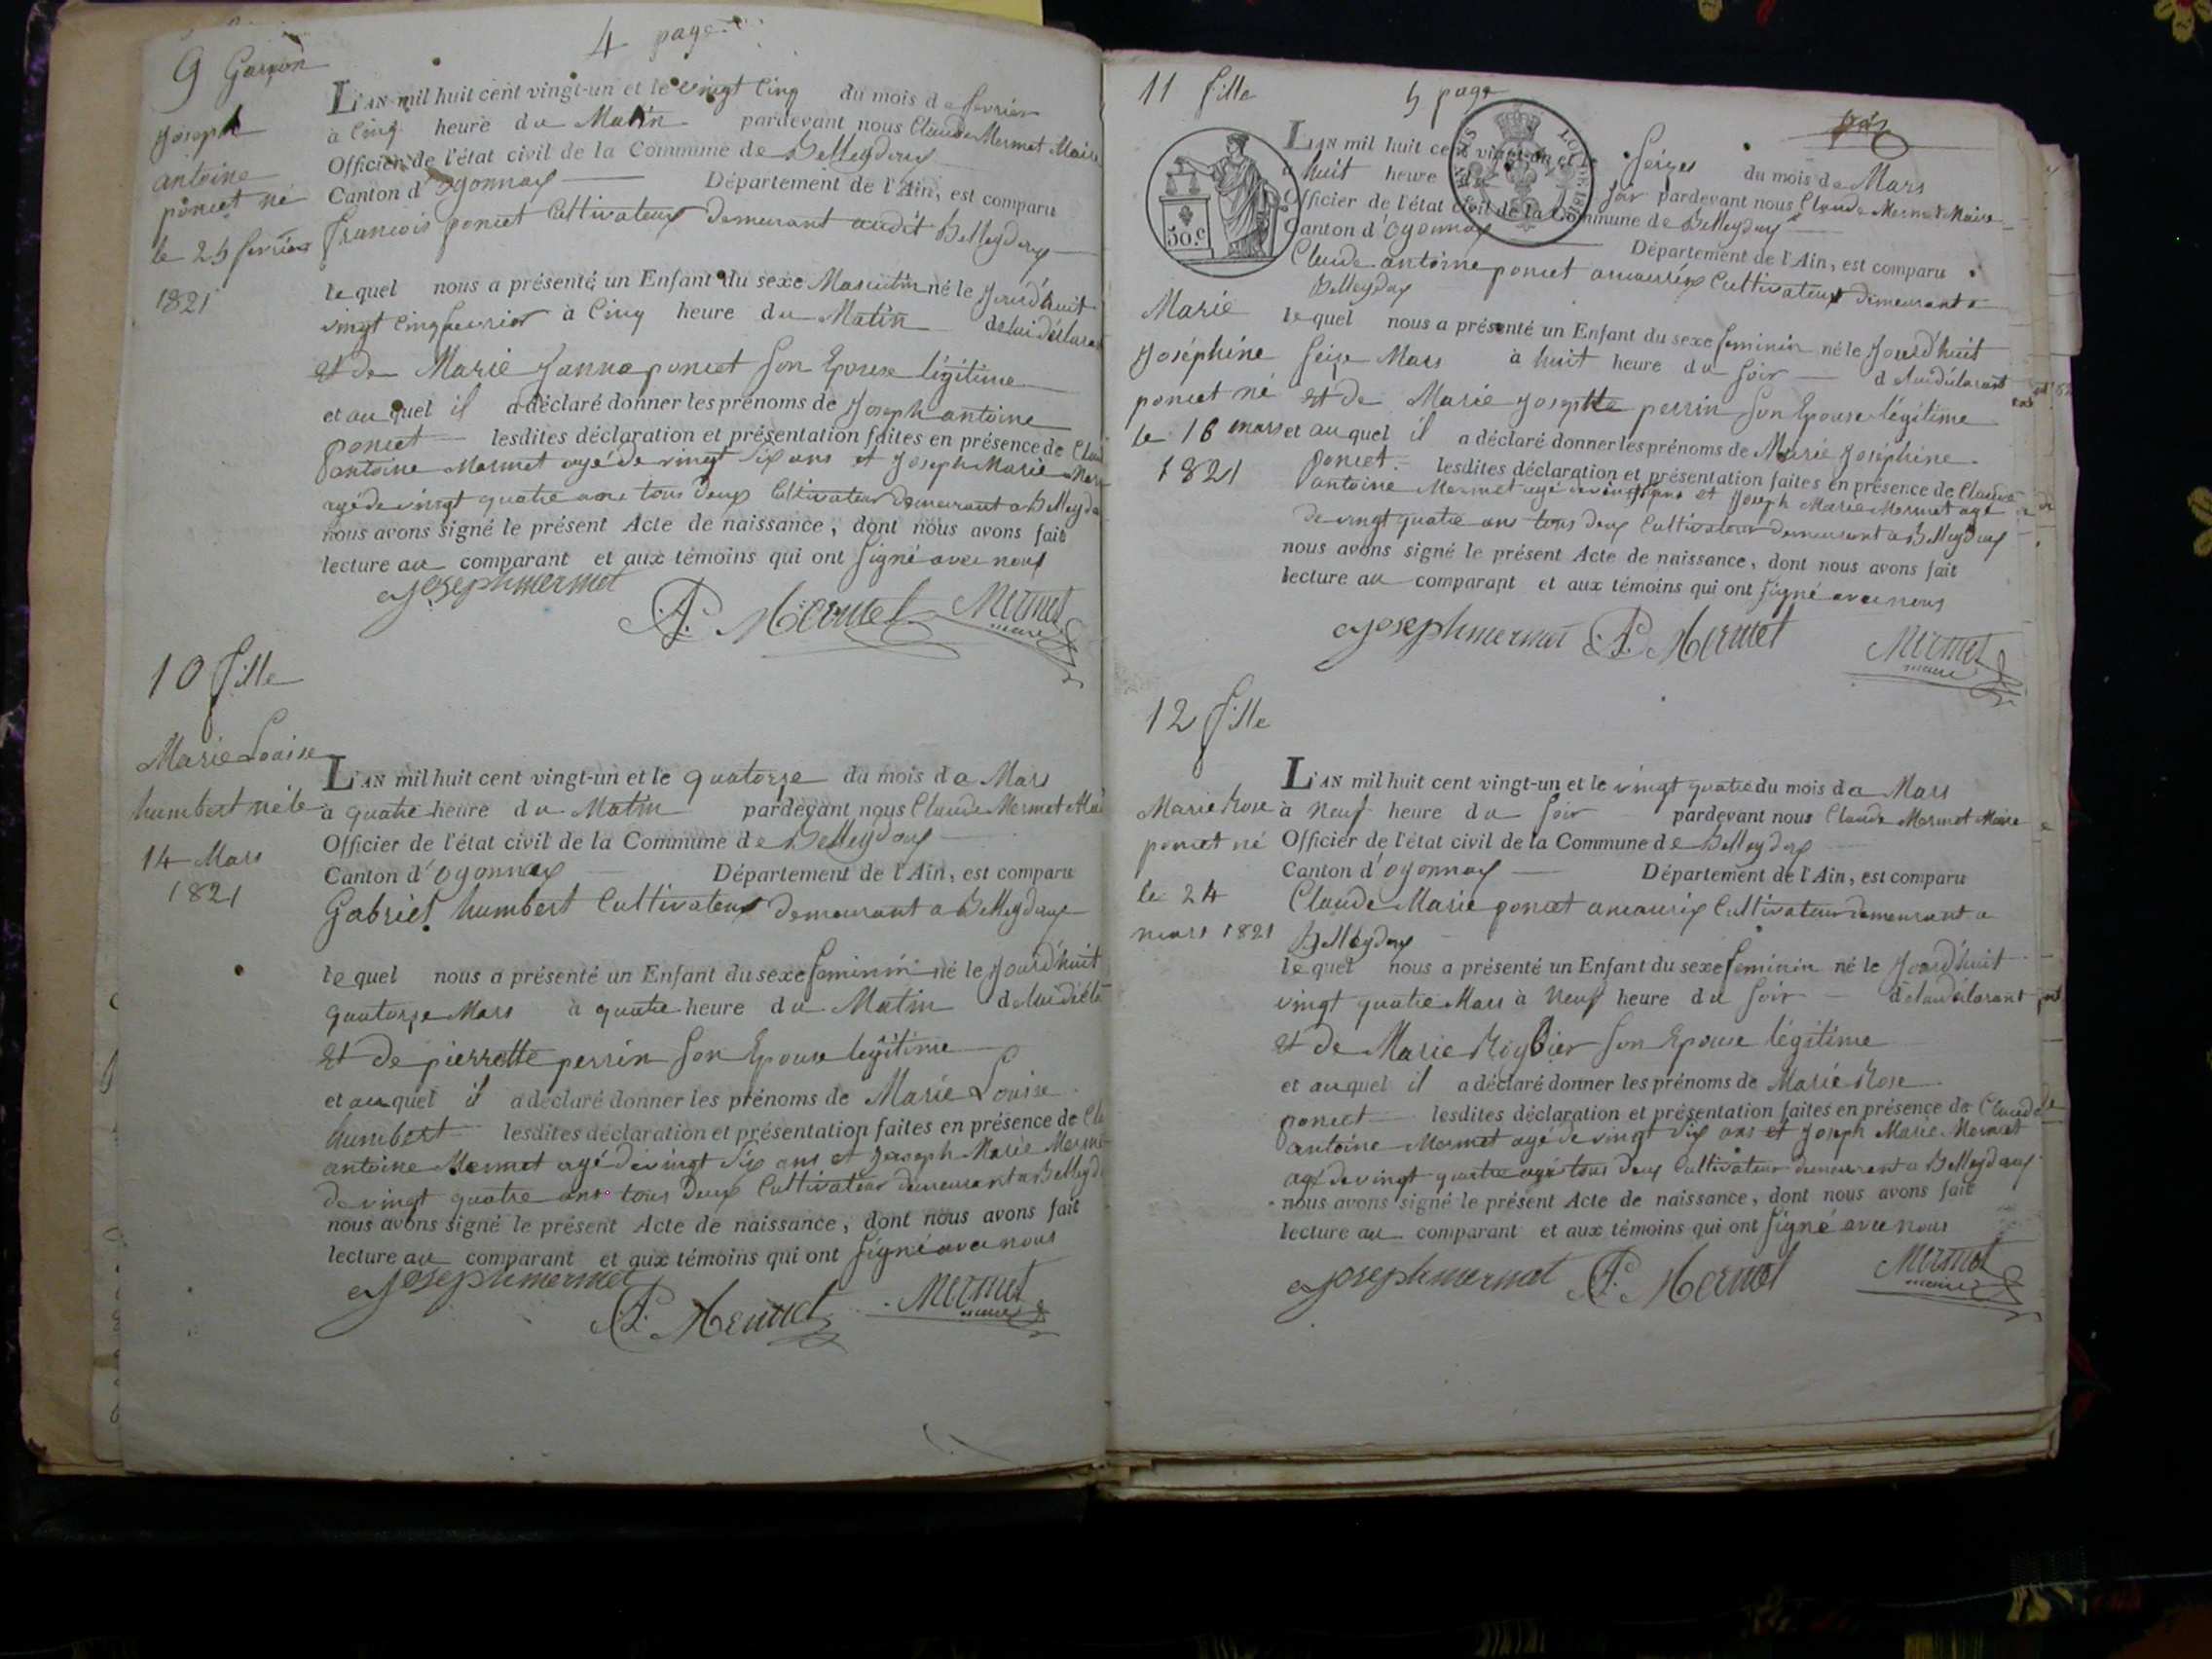 4 page
9 Garçon
Joseph
antoine
poncet né
le 25 fevrier
1821
L'AN mil huit cent vingt-un et le vingt Cinq du mois de fevrier
à Cinq heure du Matin pardevant nous Claude Mermet Maire
Officier de l'état civil de la Commune de Belleydoux
Canton d'Oyonnax Département de l'Ain, est comparu
francois poncet Cultivateur demeurant audit Belleydoux
lequel nous a présenté un Enfant du sexe Masculin né le Jourd'huit
vingt Cinq fevrier à Cinq heure du Matin de lui déclarant
et de Marie Janne poncet son Epouse légitime
et auquel il a déclaré donner les prénoms de Joseph antoine
poncet lesdites déclaration et présentation faites en présence de
antoine Mermet agé de vingt six ans et Joseph Marie
agé de vingt quatre ans tous deux Cultivateur demeurant a
nous avons signé le présent Acte de naissance, dont nous avons fait
lecture au comparant et aux témoins qui ont signé avec nous
Joseph mermet A. Mermet Mermet maire
10 fille
Marie Louise
humbert né le
14 Mars
1821
L'AN mil huit cent vingt-un et le quatorze du mois de Mars
à quatre heure du Matin pardevant nous Claude Mermet
Officier de l'état civil de la Commune de Belleydoux
Canton d'Oyonnax Département de l'Ain, est comparu
Gabriel humbert Cultivateur demeurant a Belleydoux
lequel nous a présenté un Enfant du sexe feminin né le Jourd'huit
quatorze Mars à quatre heure du Matin de lui
et de pierrette perrin son Epouse legitime
et auquel il a déclaré donner les prénoms de Marie Louise
humbert lesdites déclaration et présentation faites en présence de
antoine Mermet agé de vingt six ans et Joseph Marie
de vingt quatre ans tous deux Cultivateur demeurant a
nous avons signé le présent Acte de naissance, dont nous avons fait
lecture au comparant et aux témoins qui ont signé avec nous
Joseph mermet A. Mermet Mermet maire
5 page
11 fille
50.c
Marie
Joséphine
poncet né
le 16 mars
1821
L'AN mil huit cent vingt-un et Seize du mois de Mars
huit heure du soir pardevant nous Claude Mermet Maire
Officier de l'état civil de la Commune de Belleydoux
Canton d'Oyonnax Département de l'Ain, est comparu
Claude antoine poncet Cultivateur demeurant a
Belleydoux
lequel nous a présenté un Enfant du sexe feminin né le Jourd'huit
Seize Mars à huit heure du soir de lui déclarant
et de Marie Josephte perrin son Epouse légitime
et auquel il a déclaré donner les prénoms de Marie Joséphine
poncet lesdites déclaration et présentation faites en présence de Claude
antoine Mermet agé de vingt ans et Joseph Marie Mermet agé
de vingt quatre ans tous deux Cultivateur demeurant a Belleydoux
nous avons signé le présent Acte de naissance, dont nous avons fait
lecture au comparant et aux témoins qui ont signé avec nous
Joseph mermet A. Mermet Mermet maire
12 fille
Marie Rose
poncet né
le 24
mars 1821
L'AN mil huit cent vingt-un et le vingt quatre du mois de Mars
à Neuf heure du soir pardevant nous Claude Mermet Maire
Officier de l'état civil de la Commune de Belleydoux
Canton d'Oyonnax Département de l'Ain, est comparu
Claude Marie poncet Cultivateur demeurant a
Belleydoux
lequel nous a présenté un Enfant du sexe feminin né le Jourd'huit
vingt quatre Mars à Neuf heure du soir de lui déclarant
et de Marie Roybier son Epouse légitime
et auquel il a déclaré donner les prénoms de Marie Rose
poncet lesdites déclaration et présentation faites en présence de Claude
antoine Mermet agé de vingt six ans et Joseph Marie Mermet
agé de vingt quatre agé tous deux Cultivateur demeurant a Belleydoux
nous avons signé le présent Acte de naissance, dont nous avons fait
lecture au comparant et aux témoins qui ont signé avec nous
Joseph mermet A. Mermet Mermet maire